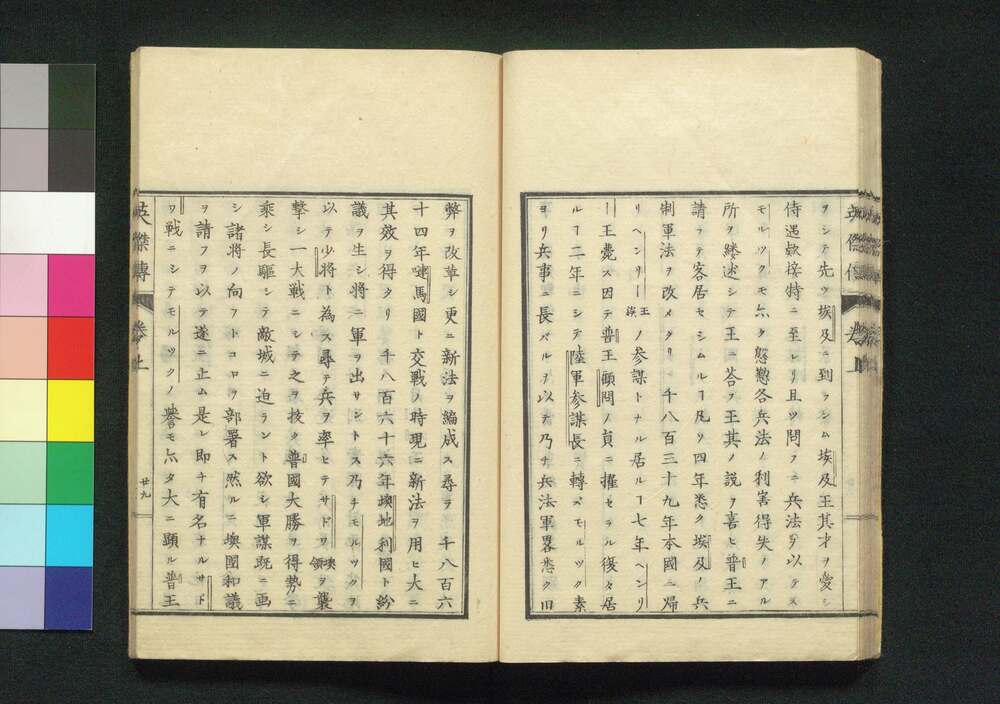 ヲシテ先ツ埃及ニ到ラシム埃及王其才ヲ愛シ
侍遇欵接特ニ至レリ且ツ問フニ兵法ヲ以テス
モルツクモ亦タ慇懃各兵法ノ利害得失ノアル
所ヲ縷述シテ王ニ荅フ王其ノ説ヲ喜ヒ普王ニ
請フテ客居セシムルヿ凡ソ四年悉ク埃及ノ兵
制軍法ヲ改メタリ一千八百三十九年本國ニ帰
リヘンリー王族ノ参謀トナル居ルヿ七年ヘンリ
ー王薨ス因テ普王顧問ノ貟ニ擢セラル復タ居
ルヿ二年ニシテ陸軍参謀長ニ轉スモルツク素
ヨリ兵事ニ長スルヲ以テ乃チ兵法軍畧悉ク旧
弊ヲ改革シ更ニ新法ヲ編成ス尋ヲ一千八百六
十四年嗹馬國ト交戦ノ時現ニ新法ヲ用ヒ大ニ
其效ヲ得タリ一千八百六十六年墺地利國ト紛
議ヲ生シ将ニ軍ヲ出サントス乃チモルツクヲ
以テ少将ト為ス尋テ兵ヲ率ヒテサドワ墺領ヲ襲
撃シ一大戦ニシテ之ヲ抜ク普國大勝ヲ得勢ニ
乘シ長駆シテ敵城ニ迫ラント欲シ軍謀既ニ画
シ諸将ノ向フトコロヲ部署ス然ルニ墺國和議
ヲ請フヲ以テ遂ニ止ム是レ即チ有名ナルサド
ワ戦ニシテモルツクノ譽モ亦タ大ニ顕ル普王
英傑傳 卷上
廿九